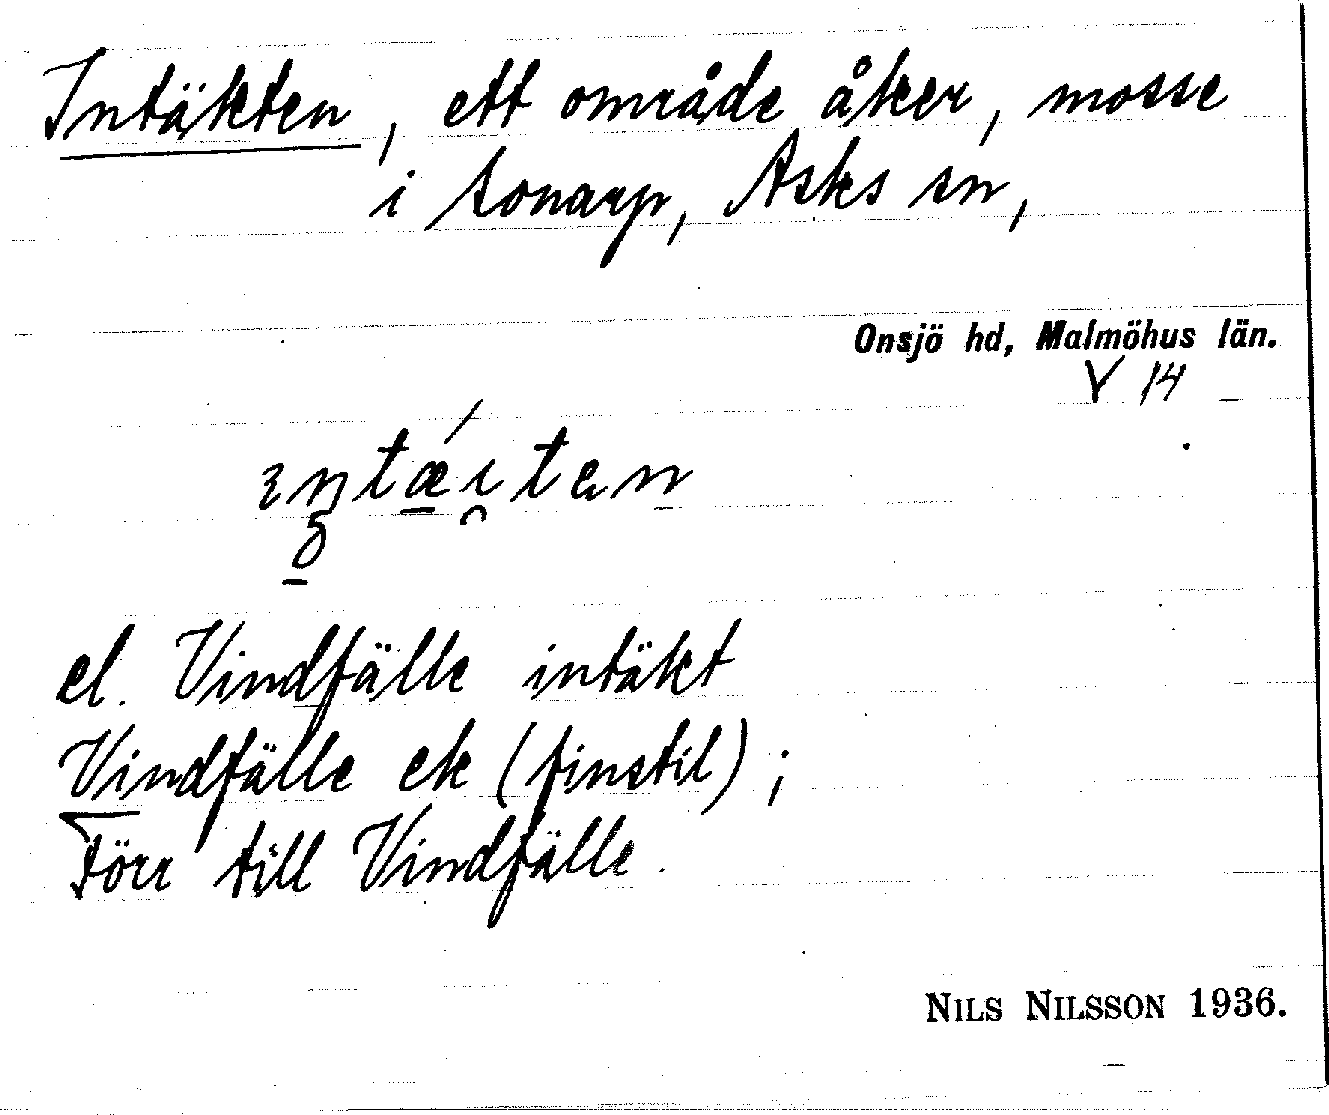 Intäkten, ett område åker, mosse
i Aonarp, Asks sn,
Onsjö hd, Malmöhus län.
V 14
el. Vindfälle intäkt
Vindfälle ek (finstil);
Förr till Vindfälle.
NILS NILSSON 1936.